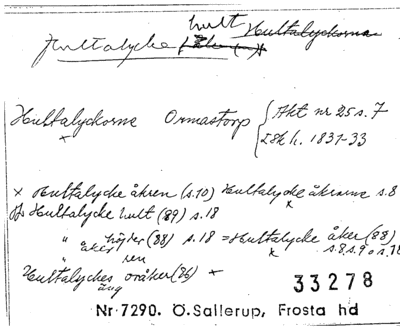 hult Hultalyckorna
Hultalycke
Hultalyckorna Ormastorp { Akt nr 25 s. 7
Lsk h. 1831-33
x Hultalycke åkren (s.10) Hultalycke åkrarna s.8
Hultalycke hult (89) s.18
" höjder (88) s.18 = Hultalycke åker (88)
åker s.8 s.9 o s.18
" ren
Hultalyckes oråker (86) x
äng
33278
Nr 7290. Ö.Sallerup, Frosta hd